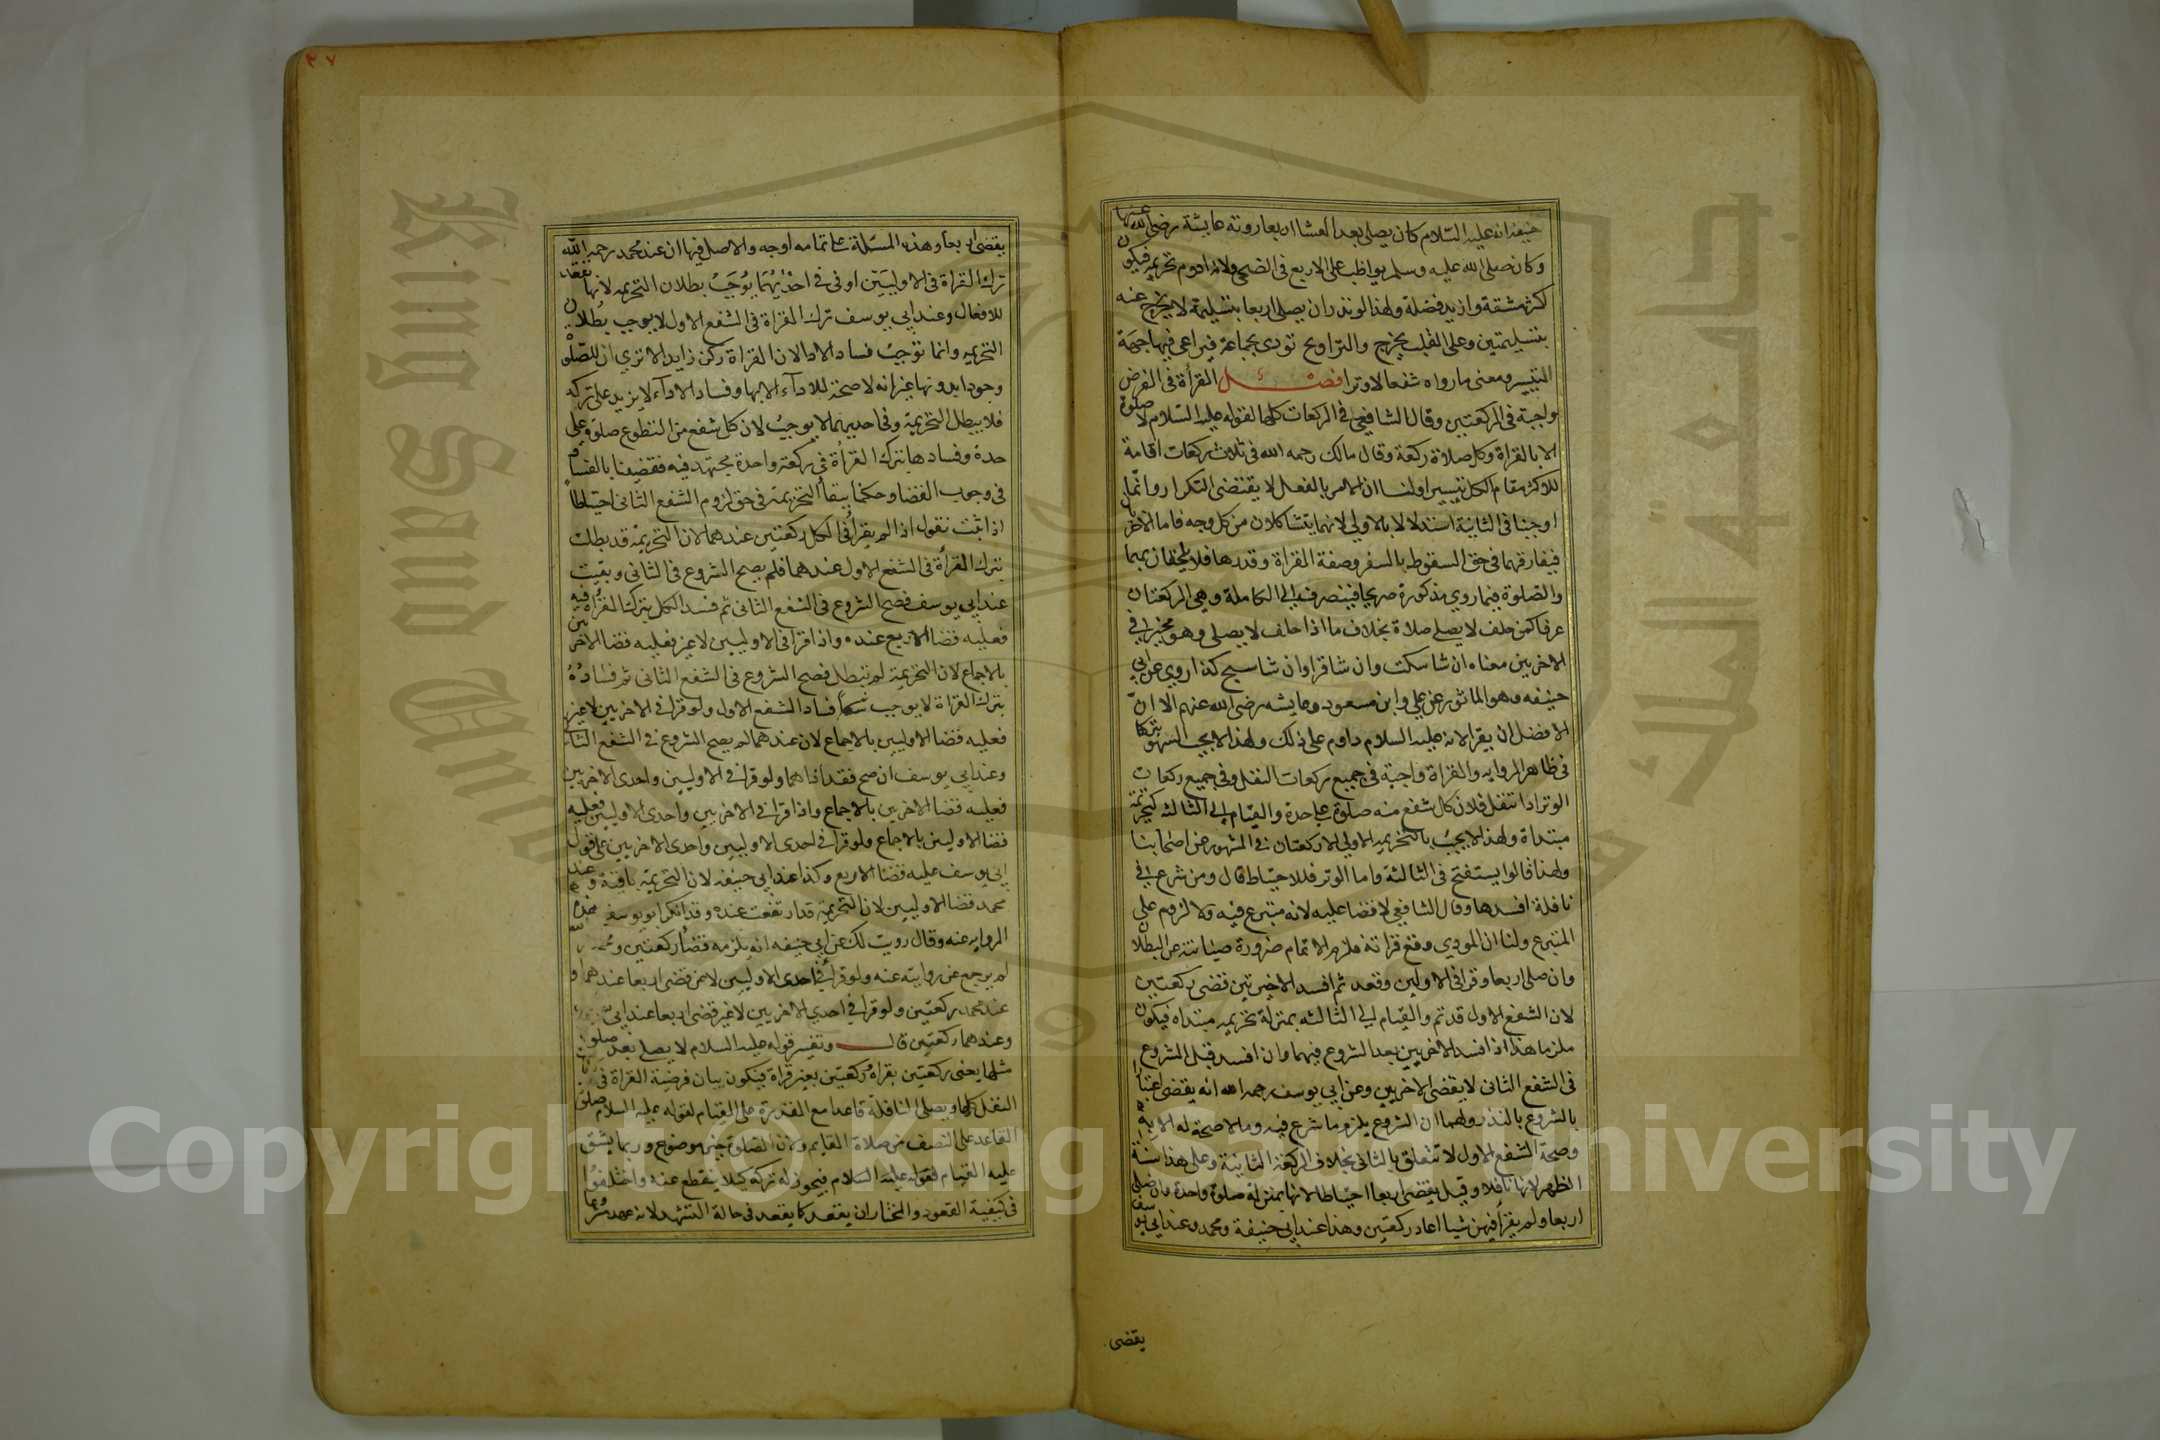 حنيفة انه عليه السلام كان يصلي بعد العشا اربعا روته عايشة رضي الله عنها
وكان صلى الله عليه وسلم يواظب على الاربع في الضحى ولانه ادوم تحريمه فيكون
اكثر مشقة وازيد فضلة ولهذا لو نذر ان يصلي اربعا بتسليمة لا يخرج عنه
بتسليمتين وعلى القلب يخرج والتراويح تؤدى بجماعة فيراعى فيها جهة
التيسير ومعنى ما رواه شفعا لا وترا فصل القرأة في الفرض
واجبة في الركعتين وقال الشافعي في الركعات كلها لقوله عليه السلام لا صلوة
الا بالقراة وكل صلاة ركعة وقال مالك رحمه الله في ثلاث ركعات اقامة
للاكثر مقام الكل تيسيرا ولنا ان الامر بالفعل لا يقتضي التكرار وانما
اوجبنا في الثانية استدلالا بالاولى لانهما يتشاكلان من كل وجه فاما الاخريان
فيفارقهما في حق السقوط بالسفر وصفة القراة وقدرها فلا يلحقان بهما
والصلوة فيما روي مذكورة صريحا فينصرف الى الكاملة وهي الركعتان
عرفا كمن حلف لا يصلي صلاة بخلاف ما اذا حلف لا يصلي وهو مخير في
الاخريين معناه ان شا سكت وان شا قرا وان شا سبح كذا روي عن ابي
حنيفه وهو الماثور عن علي وابن مسعود وعايشه رضي الله عنهم الا ان
الافضل ان يقرا لانه عليه السلام داوم على ذلك ولهذا لا يجب السهو بتركها
في ظاهر الروايه والقراة واجبة في جميع ركعات النفل وفي جميع ركعات
الوتر اما النفل فلان كل شفع منه صلوة على حدة والقيام الى الثالثه كتحريمة
مبتداة ولهذا لا يجب بالتحريمه الاولى الا ركعتان في المشهور عن اصحابنا
ولهذا قالوا يستفتح في الثالثة واما الوتر فللاحتياط قال ومن شرع في
نافلة افسدها وقال الشافعي لا قضا عليه لانه متبرع فيه ولا لزوم على
المتبرع ولنا ان المودي وقع قربة فلزم الاتمام ضرورة صيانته عن البطلان
وان صلى اربعا وقرا في الاوليين وقعد ثم افسد الاخريين قضى ركعتين
لان الشفع الاول قد تم والقيام الى الثالثه بمنزلة تحريمه مبتداه فيكون
ملزما هذا اذا افسد الاخريين بعد الشروع فيهما وان افسد قبل الشروع
في الشفع الثاني لا يقضي الاخريين وعن ابي يوسف رحمه الله انه يقضي اعتبارا
بالشروع بالنذر ولهما ان الشروع يلزم ما شرع فيه وما لا صحة له الا به
وصحة الشفع الاول لا تتعلق بالثاني بخلاف الركعة الثانية وعلى هذا سنة
الظهر لانها نافلة وقيل يقضي اربعا احتياطا لانها بمنزلة صلوة واحدة وان صلى
اربعا ولم يقرأ فيهن شيا اعاد ركعتين وهذا عند ابي حنيفة ومحمد وعند ابي يوسف
يقضي
يقضي اربعا وهذه المسئلة على ثمانيه اوجه والاصل فيها ان عند محمد رحمه الله
ترك القراة في الاوليين او في احديهما يوجب بطلان التحريمه لانها تعقد
للافعال وعند ابي يوسف ترك القراة في الشفع الاول لا يوجب بطلان
التحريمه وانما توجب فساد الادا لان القراة ركن زايد الا تري ان للصلوة
وجودا بدونها غير انه لا صحة للاداء الا بها وفساد الاداء لا يزيد على تركه
فلا يبطل التحريمة وفي احديهما لا يوجب لان كل شفع من التطوع صلوة على
حدة وفسادها بترك القراة في ركعة واحدة مجتهد فيه فقضينا بالفساد
في وجوب القضا وحكمنا ببقا التحريمة في حق لزوم الشفع الثاني احتياطا
اذا ثبت نقول اذا لم يقرأ في الكل ركعتين عندهما لان التحريمة قد بطلت
بترك القرأة في الشفع الاول عندهما فلم يصح الشروع في الثاني وبقيت
عند ابي يوسف فصح الشروع في الشفع الثاني ثم فسد الكل بترك القراة فيه
فعليه قضا الاربع عنده واذا قرا في الاوليين لا غير فعليه قضا الاخريين
بالاجماع لان التحريمة لم تبطل فصح الشروع في الشفع الثاني ثم فساده
بترك القراة لا يوجب فساد الشفع الاول ولو قرا في الاخريين لا غير
فعليه قضا الاوليين بالاجماع لان عندهما لم يصح الشروع في الشفع الثاني
وعند ابي يوسف ان صح فقد اداهما ولو قرا في الاوليين واحدى الاخريين
فعليه قضا الاخريين بالاجماع واذا قرا في الاخريين واحدى الاوليين فعليه
قضا الاوليين بالاجماع ولو قرا في احدى الاوليين واحدى الاخريين على قول
ابي يوسف عليه قضا الاربع وكذا عند ابي حنيفه لان التحريمة باقية وعند
محمد قضا الاوليين لان التحريمة قد ارتفعت عنده وقد انكر ابو يوسف هذه
الروايه عنه وقال رويت لك عن ابي حنيفه انه يلزمه قضا ركعتين ومحمد
لم يرجع عن روايته عنه ولو قرأ في احدى الاوليين لا غير قضى اربعا عندهما و
عند محمد ركعتين ولو قرا في احدي الاخريين لا غير قضى اربعا عند ابي يوسف
وعندهما ركعتين قال وتفسير قوله عليه السلام لا يصلى بعد صلوة
مثلها يعني ركعتين بقراة وركعتين بغير قراة فيكون بيان فرضية القراة في ركعات
النفل كلها ويصلي النافلة قاعدا مع القدرة على القيام لقوله عليه السلام صلوة
القاعد على النصف من صلاة القايم ولان الصلوة خير موضوع وربما يشق
عليه القيام فيجوز له تركه كيلا ينقطع عنه واختلفوا
في كيفية القعود والمختار ان يقعد كما يقعد في حالة التشهد لانه عهد مشروعا
٣٧
King Saud University
جامعة الملك سعود
Copyright © King Saud University